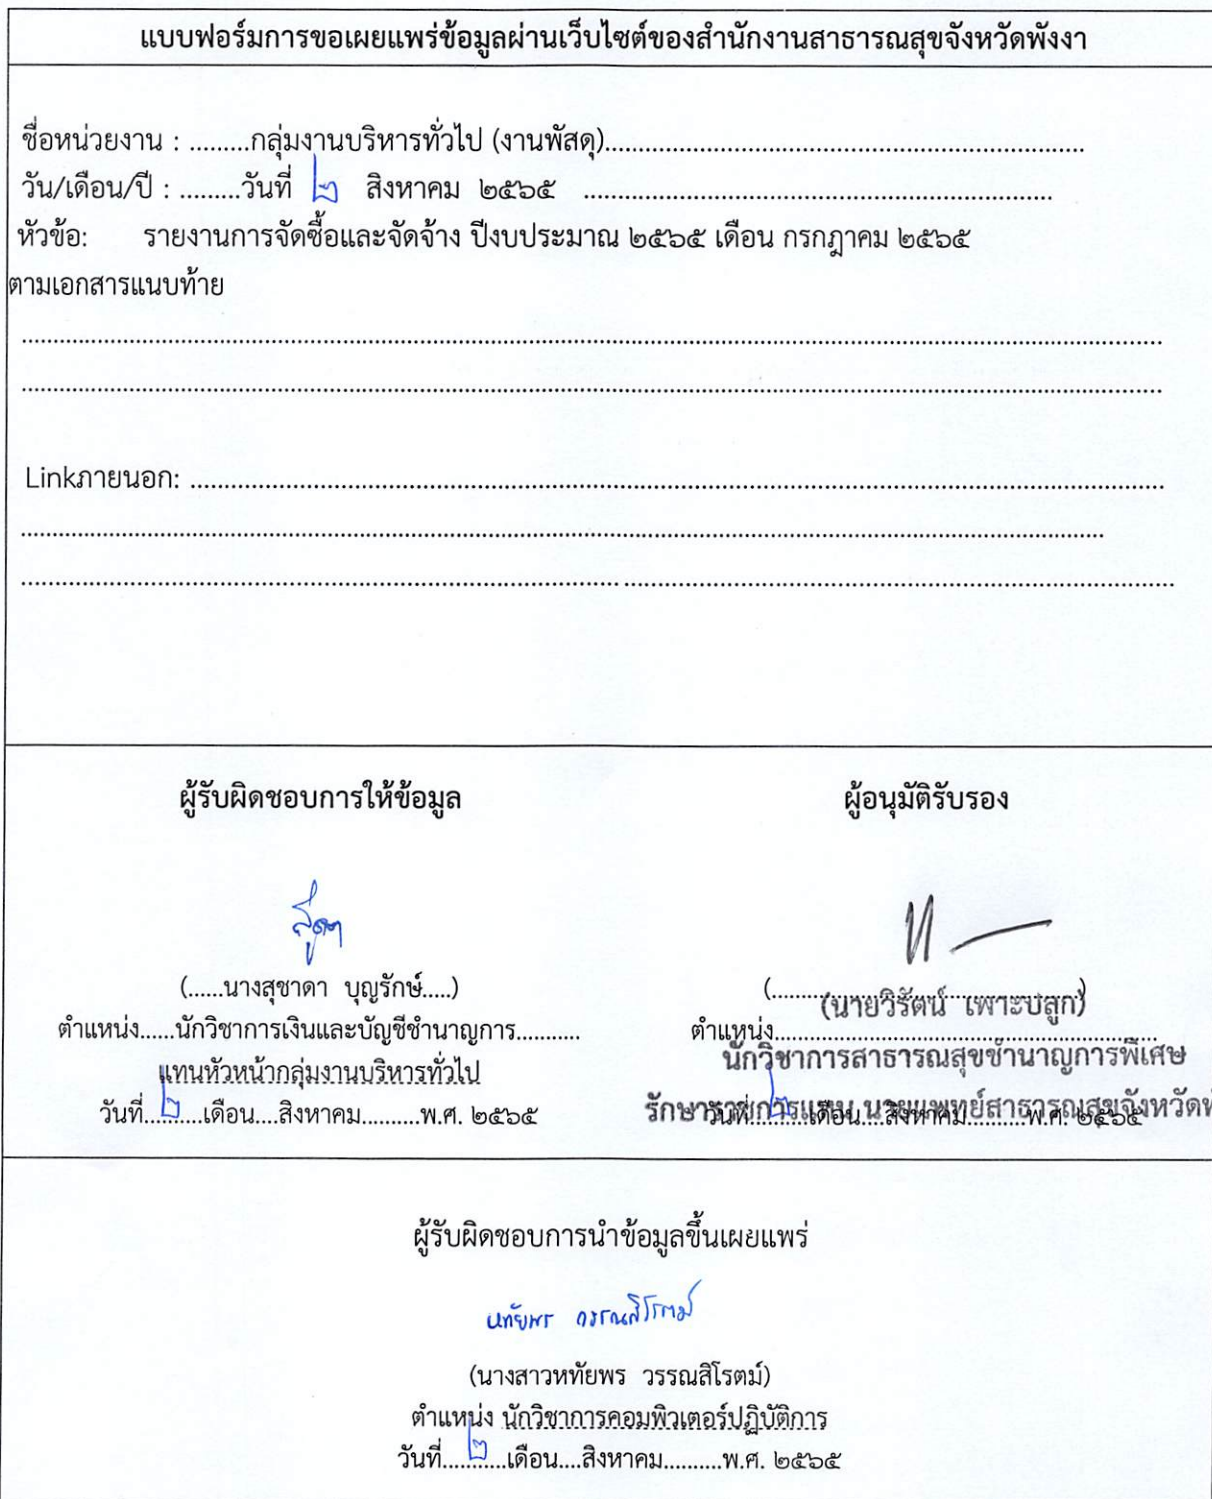 แบบฟอร์มการขอเผยแพร่ข้อมูลผ่านเว็บไซต์ของสำนักงานสาธารณสุขจังหวัดพังงา
ชื่อหน่วยงาน : .........กลุ่มงานบริหารทั่วไป (งานพัสดุ)...............................................................................
วัน/เดือน/ปี : .........วันที่ ๒ สิงหาคม ๒๕๖๕ .............................................................................
หัวข้อ: รายงานการจัดซื้อและจัดจ้าง ปีงบประมาณ ๒๕๖๕ เดือน กรกฎาคม ๒๕๖๕
ตามเอกสารแนบท้าย
Linkภายนอก: ................................................................................
ผู้รับผิดชอบการให้ข้อมูล
(......นางสุชาดา บุญรักษ์.....)
ตำแหน่ง......นักวิชาการเงินและบัญชีชำนาญการ...........
แทนหัวหน้ากลุ่มงานบริหารทั่วไป
วันที่....๒....เดือน....สิงหาคม..........พ.ศ. ๒๕๖๕
ผู้อนุมัติรับรอง
(นายวิรัตน์ เพาะปลูก)
ตำแหน่ง................................................................
นักวิชาการสาธารณสุขชำนาญการพิเศษ
รักษาราชการแทน นายแพทย์สาธารณสุขจังหวัด
วันที่....๒....เดือน....สิงหาคม..........พ.ศ. ๒๕๖๕
ผู้รับผิดชอบการนำข้อมูลขึ้นเผยแพร่
หทัยพร วรรณสิโรตม์
(นางสาวหทัยพร วรรณสิโรตม์)
ตำแหน่ง นักวิชาการคอมพิวเตอร์ปฏิบัติการ
วันที่....๒....เดือน....สิงหาคม..........พ.ศ. ๒๕๖๕